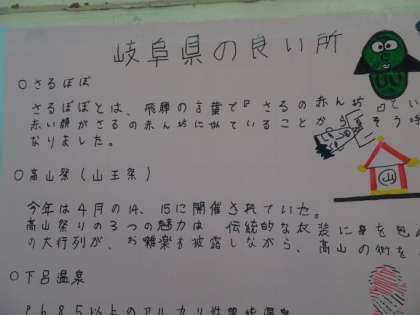 岐阜県の良い所
○さるぼぼ
さるぼぼとは、飛騨の言葉で『さるの赤ん坊』とい
赤い顔がさるの赤ん坊に似ていることからそう呼
なりました。
○高山祭(山王祭)
山
今年は4月の14、15に開催されていた。
高山祭りの3つの魅力は 伝統的な衣装に身を包
の大行列が、お囃楽を披露しながら、高山の街を
○下呂温泉
Ph8.5以上のアルカリ性単純温泉